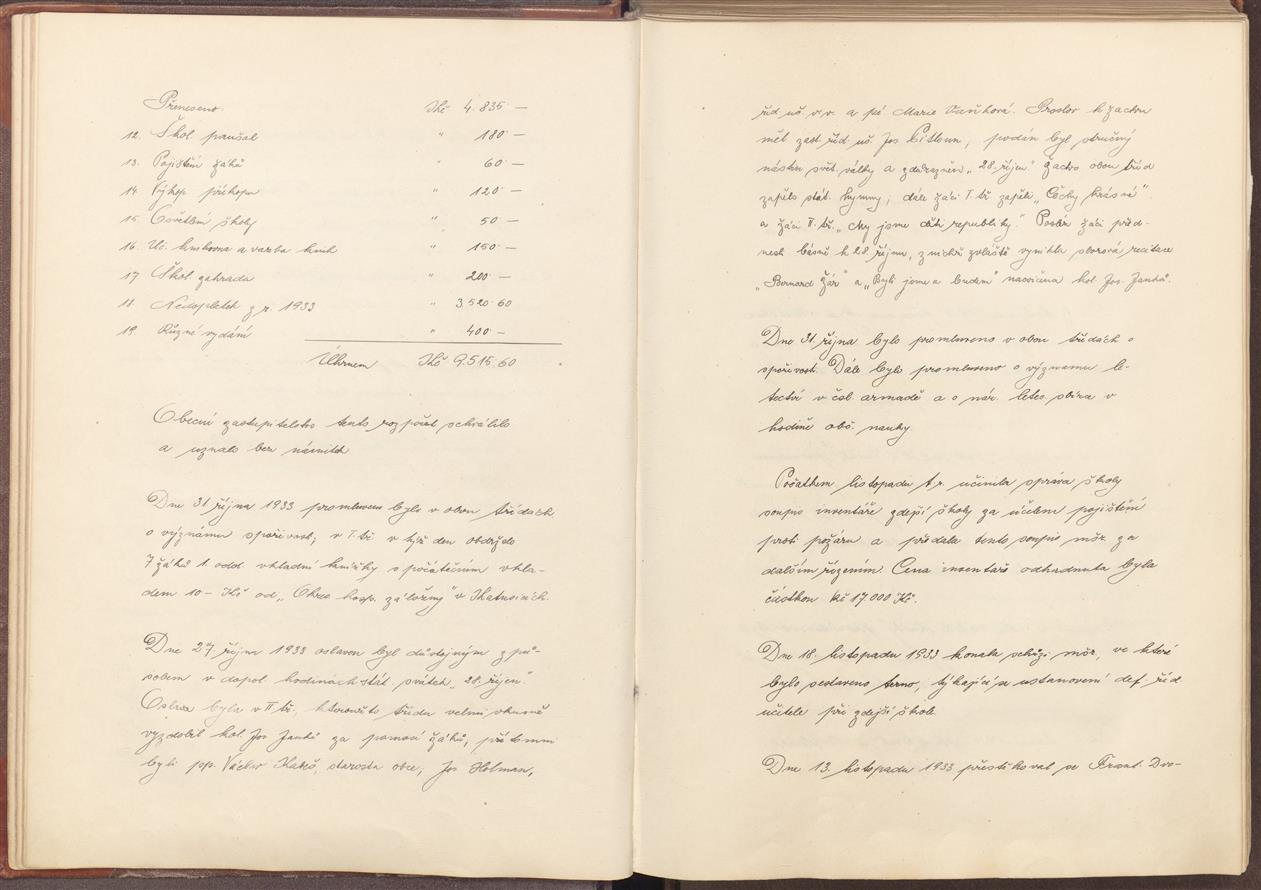 Přeneseno. Kč 4.835 —
12. Škol. paušal " 180 —
13. Pojištění žáků " 60 —
14. Výkop příkopu " 120 —
15. Osvětlení školy " 50 —
16. Uč. knihovna a vazba knih " 150 —
17. Škol. zahrada " 200 —
18. Nedoplatek z r. 1933 " 3.520.60
19. Různé vydání " 400 —
Úhrnem Kč 9.515.60
Obecní zastupitelstvo tento rozpočet schválilo
a uznalo bez námitek
Dne 31. října 1933 promluveno bylo v obou třídách
o významu spořivosti; v I. tř. v týž den obdrželo
7 žáků 1. odd. vkladní knížky s počátečním vkla-
dem 10 – Kč od „Okres. hosp. záložny" v Katusicích.
Dne 27. října 1933 oslaven byl důstojným způ-
sobem v dopol. hodinách stát. svátek „28. říjen".
Oslava byla v II. tř., kteroužto třídu velmi vkusně
vyzdobil kol. Jos. Jandů za pomoci žáků, přítomni
byli pp. Václav , starosta obce, Jos. Holman,
říd. uč. v. v. a pí Marie Vaňková. Proslov k žactvu
měl zast. říd. uč. Jos. , podán byl stručný
nástin svět. války a zdůrazněn „28. říjen" žactvo obou tříd
zapělo stát. hymny; dále žáci I. tř. zapěli „Čechy krásné"
a žáci II. tř. „My jsme děti republiky". Posléz žáci před-
nesli básně k 28. říjnu, z nichž zvláště vynikla sborová recitace
" " a „Byli jsme a budem" nacvičena kol. Jos. Jandů.
Dne 31. října bylo promluveno v obou třídách o
spořivosti. Dále bylo promluveno o významu le-
tectví v čsl. armádě a o nár. letec. sbírce v
hodině obč. nauky.
Počátkem listopadu t. r. učinila správa školy
soupis inventáře zdejší školy za účelem pojištění
proti požáru a předala tento soupis mšr. za
dalším řízením. Cena inventáře odhadnuta byla
částkou Kč 17.000 Kč.
Dne 18. listopadu 1933 konala schůzi mšr., ve které
bylo sestaveno terno, týkající se ustanovení def. říd.
učitele při zdejší škole.
Dne 13. listopadu 1933 přestěhoval se Frant. Dvo-